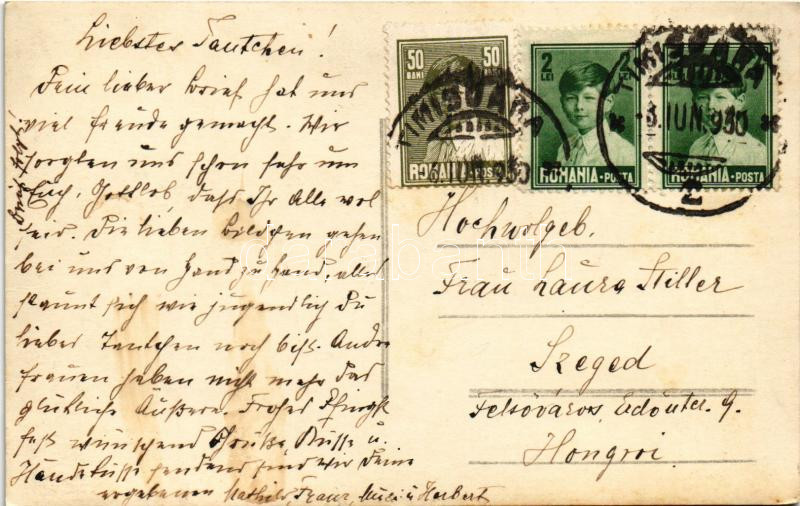 Liebstes Tantchen!
Dein lieber Brief hat uns
viel Freude gemacht. Wir
sorgten uns schon sehr um
Euch, Gottlob, dass Ihr Alle wol
seid. Die lieben Bildchen gehen
bei uns von Hand zu Hand, alles
staunt sich wie jugendlich Du
liebes Tantchen noch bist. Andre
Frauen haben nicht mehr das
glückliche Äußere. Frohes Pfingst
fest wünschend Grüße, Küsse u.
Handküsse sendend sind wir Deine
ergebenen Mathild, Franz, Muci u Herbert
50 BANI 50
ROMANIA POSTA
2 LEI
ROMANIA-POSTA
ROMANIA-POSTA
TIMISOARA
IUN. 930
TIMISOARA
-3. IUN. 930
2
Hochwolgeb.
Frau Laura Stiller
Szeged
Felsőváros, 9.
Hongroi
darabanth